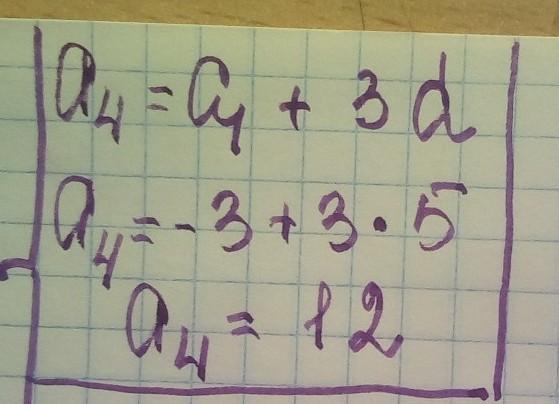 a₄ = a₁ + 3d
a₄ = -3 + 3·5
a₄ = 12